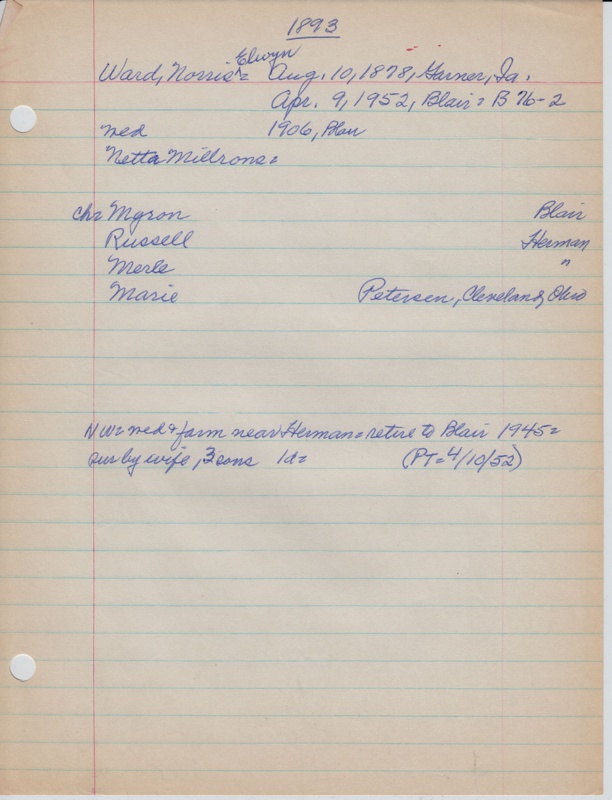 1893
Elwyn
Ward, Norris = Aug. 10, 1878, Garner, Ia.
Apr. 9, 1952, Blair = B 76-2
wed 1906, Blair
Netta Millrons =
ch = Myron Blair
Russell Herman
Merle "
Marie Petersen, Cleveland, Ohio
NW = wed & farm near Herman = retire to Blair 1945 =
sur by wife, 3 sons 1d = (PT = 4/10/52)